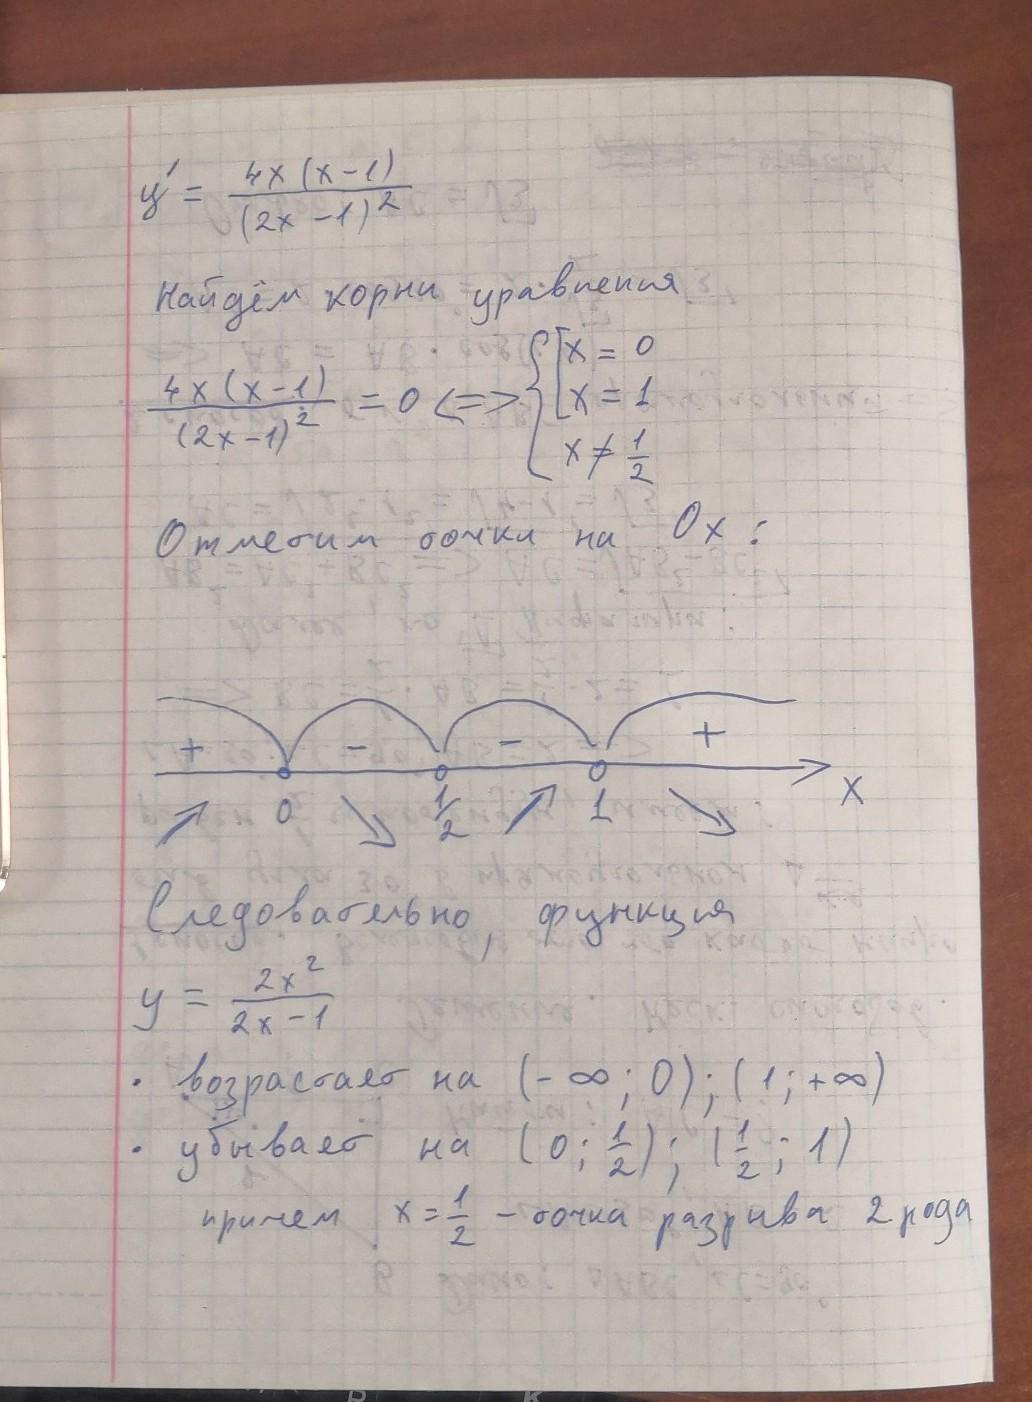 y' = 4x(x-1) / (2x-1)²
Найдём корни уравнения
4x(x-1) / (2x-1)² = 0 <=> { [ x = 0
x = 1
x ≠ 1/2
Отметим точки на Ox:
+ - - +
0 1/2 1 x
Следовательно, функция
y = 2x² / 2x-1
• возрастает на (-∞; 0); (1; +∞)
• убывает на (0; 1/2); (1/2; 1)
причем x = 1/2 - точка разрыва 2 рода